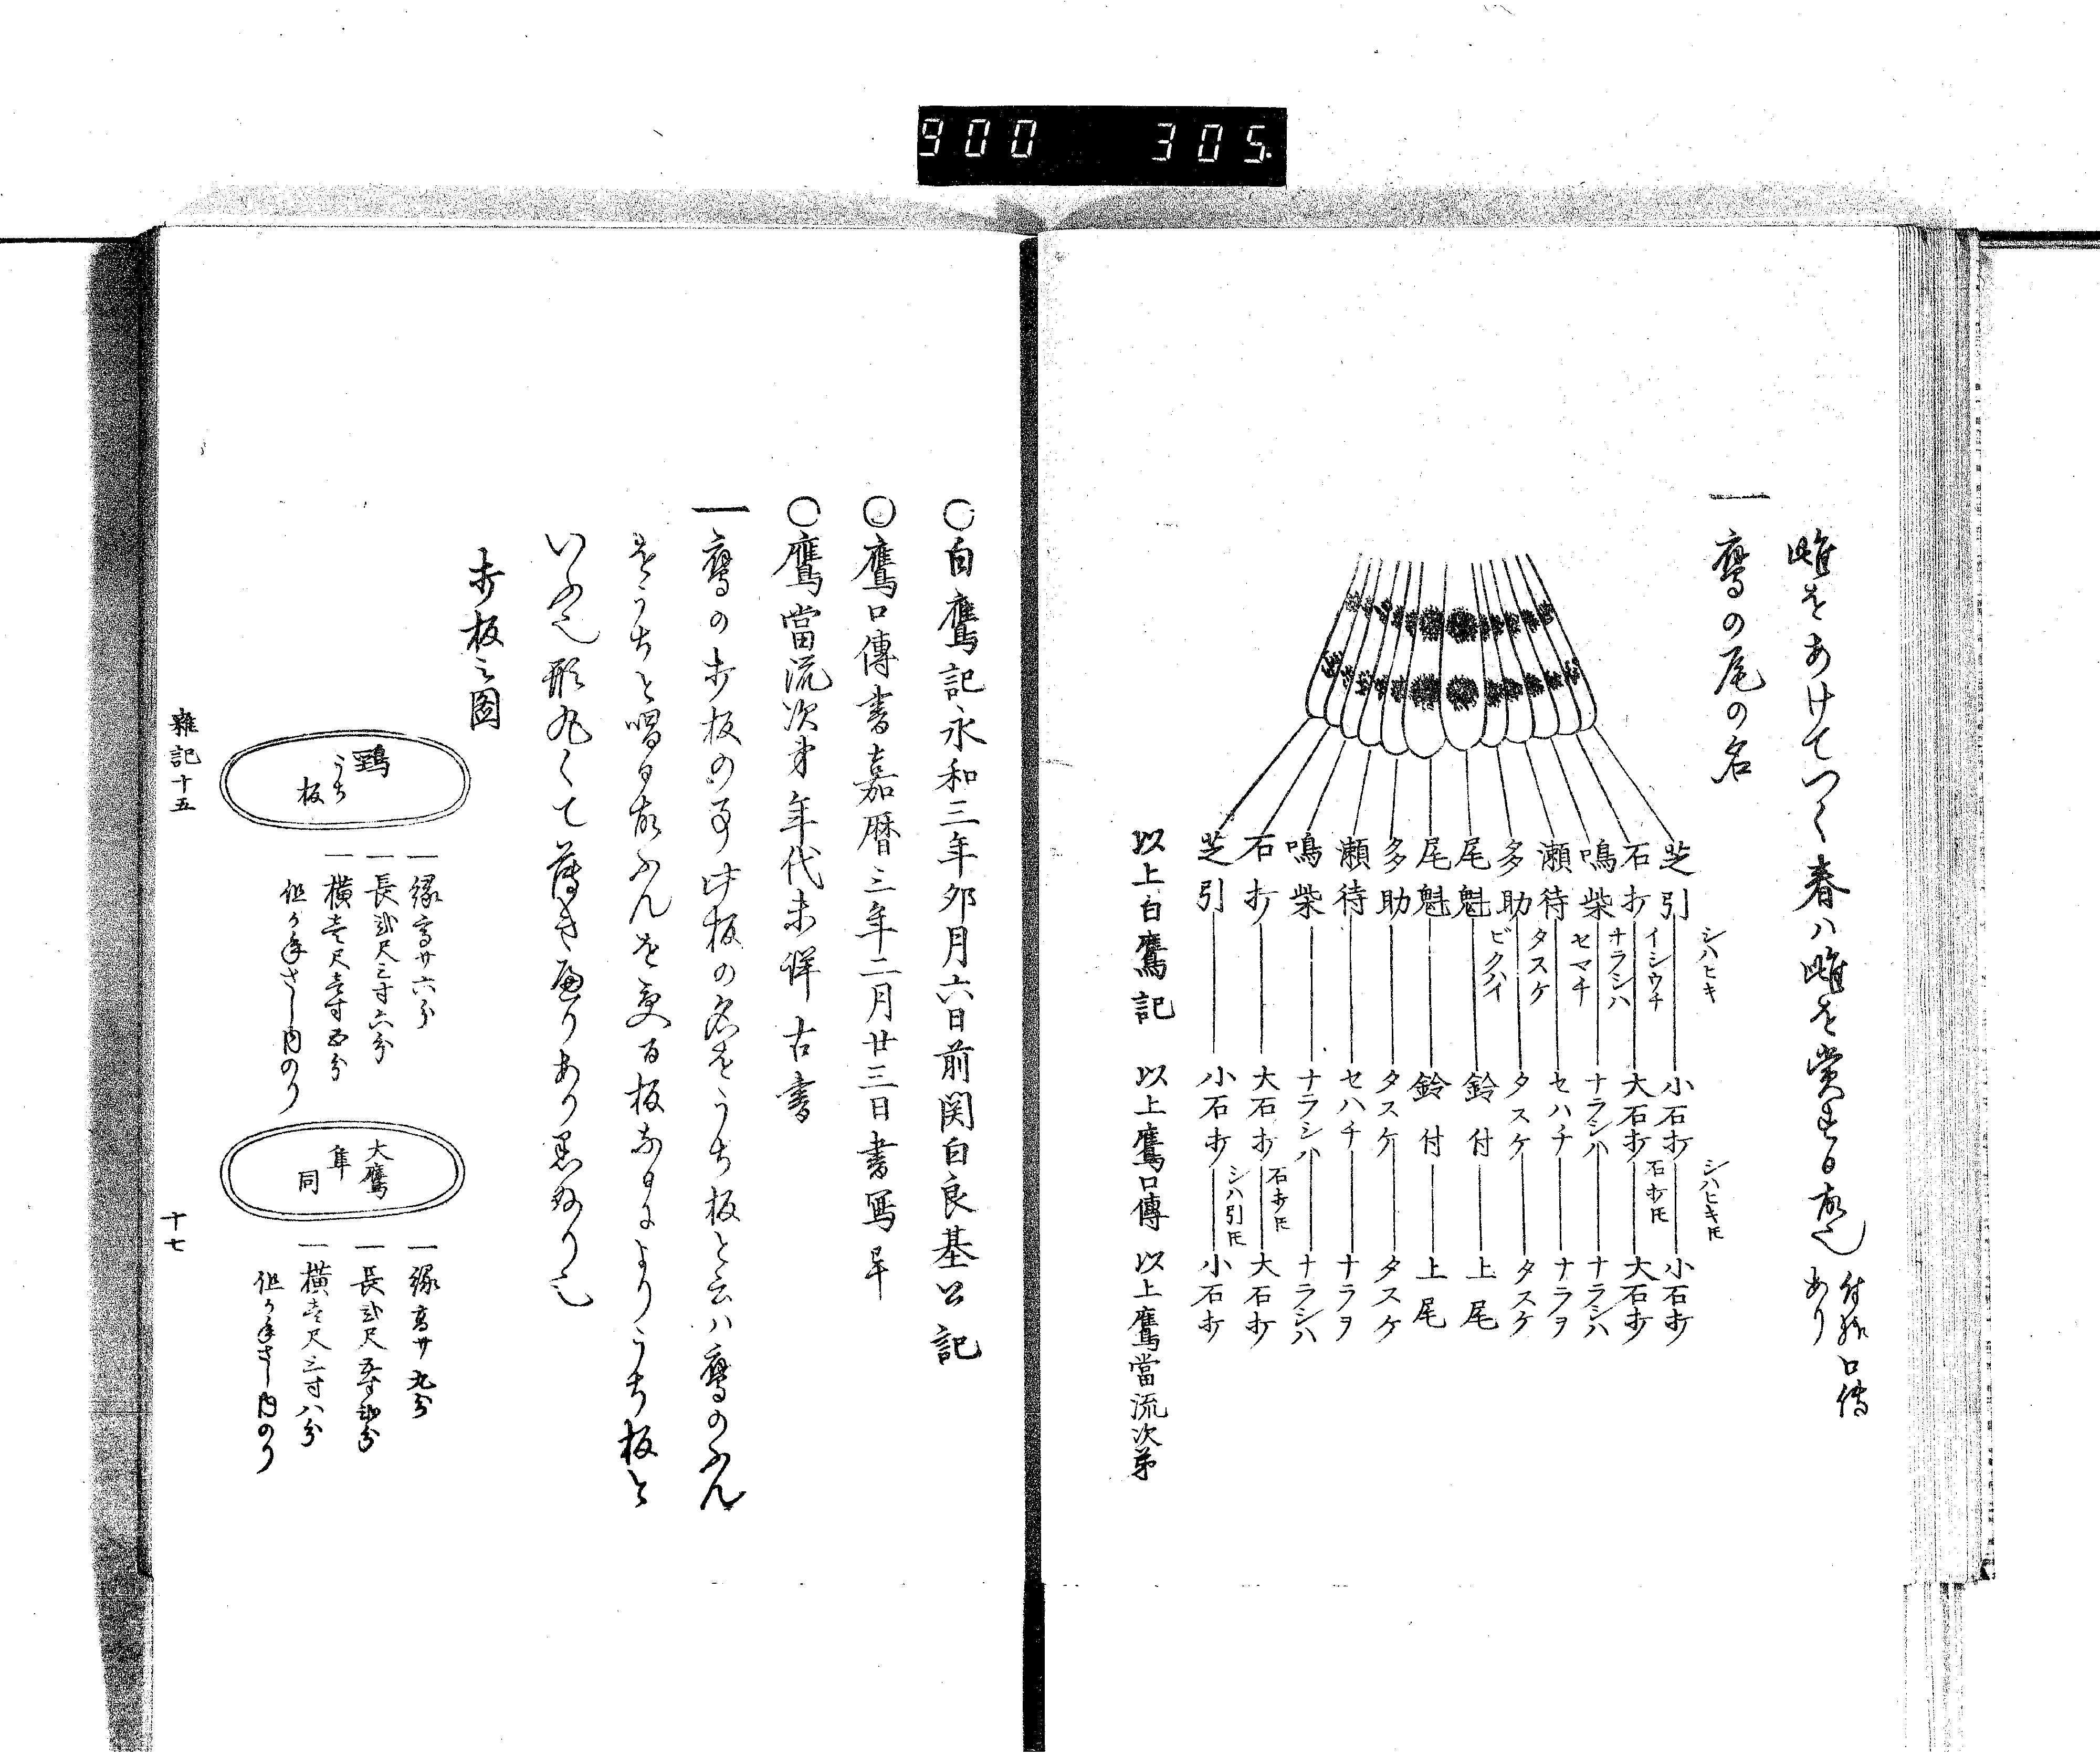 900 305
雌をあけてつく春ハ雌を賞する故也
付様口傳
あり
一鷹の尾の名
芝引 石打 鳴柴 瀬待 多助 尾魁 尾魁 多助 瀬待 鳴柴 石打 芝引 以上白鷹記
シハヒキ イシウチ ナラシハ セマチ タスケ
小石打 大石打 ナラシハ セハチ タスケ 鈴付 鈴付 タスケ セハチ ナラシハ 大石打 小石打 以上鷹口傳
シハヒキ圧 石打圧 石打圧 シハ引圧
小石打 大石打 ナラシハ ナラヲ タスケ 上尾 上尾 タスケ ナラヲ ナラシハ 大石打 小石打 以上鷹當流次第
○白鷹記永和三年卯月六日前関白良基公記
○鷹口傳書嘉暦三年二月廿三日書写畢
○鷹當流次才年代未詳古書
一鷹の打板の事此板の名をうち板と云ハ鷹のふん
をうちと唱る故ふんを受る板なるによりうち板と
いふ也形丸くて薄き縁りあり黒ぬり也
打板之図
うち
板
一縁高サ六分
一長弐尺三寸六分
一横壱尺壱寸五分
但かねさし内のり
大鷹
隼
同
一縁高サ九分
一長弐尺五寸弐分
一横壱尺三寸八分
但かねさし内のり
雜記十五
十七